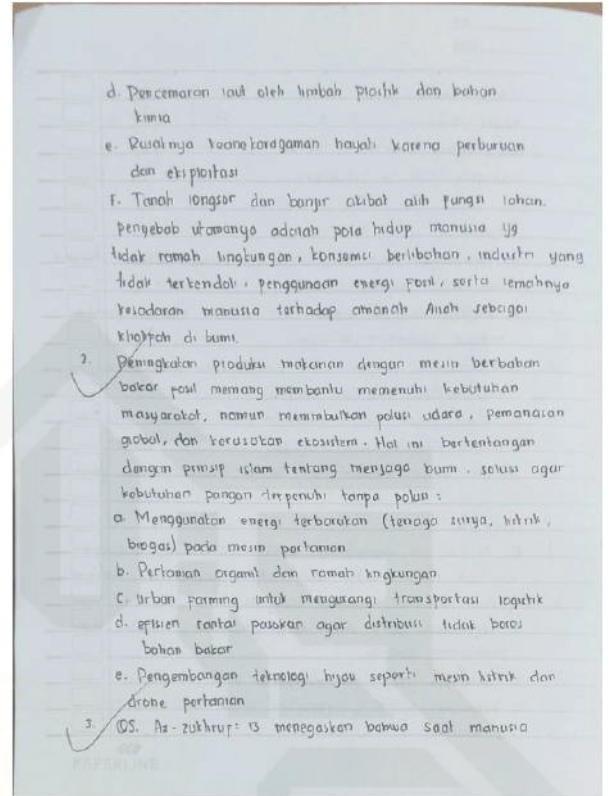 d. Pencemaran laut oleh limbah plastik dan bahan
kimia
e. Rusaknya keanekaragaman hayati karena perburuan
dan eksploitasi
F. Tanah longsor dan banjir akibat alih fungsi lahan.
penyebab utamanya adalah pola hidup manusia yg
tidak ramah lingkungan, konsumsi berlebihan, industri yang
tidak terkendali, penggunaan energi fosil, serta lemahnya
kesadaran manusia terhadap amanah Allah sebagai
khalifah di bumi.
2. Peningkatan produksi makanan dengan mesin berbahan
bakar fosil memang membantu memenuhi kebutuhan
masyarakat, namun menimbulkan polusi udara, pemanasan
global, dan kerusakan ekosistem. Hal ini bertentangan
dengan prinsip islam tentang menjaga bumi. solusi agar
kebutuhan pangan terpenuhi tanpa polusi :
a. Menggunakan energi terbarukan (tenaga surya, listrik,
biogas) pada mesin pertanian
b. Pertanian organik dan ramah lingkungan
C. Urban farming untuk mengurangi transportasi logistik
d. efisien rantai pasokan agar distribusi tidak boros
bahan bakar
e. Pengembangan teknologi hijau seperti mesin listrik dan
drone pertanian
3. QS. Az-zukhruf: 13 menegaskan bahwa saat manusia
PAPERLINE